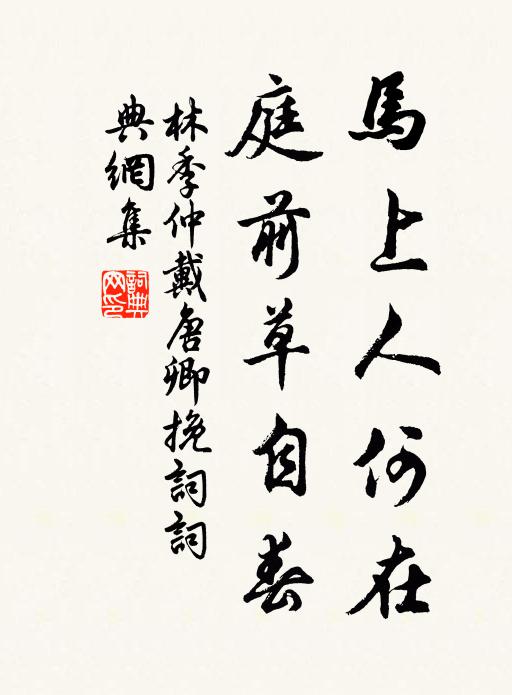 馬上人何在
庭前草自春
林季仲戴唐卿挽詞詞
典網集
詞典網印